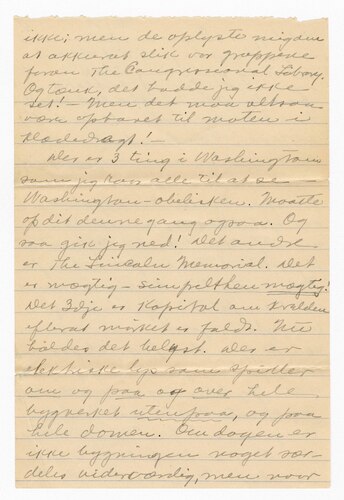 ikke; men de oplyste migom
at akkurat slik var gruppene
foran The Congressional Library.
Og tænk, det hadde jeg ikke
set! – Men det maa altsaa
være opsatet til moten i
klædedragt! –
Der er 3 ting i Washington
som jeg raar alle til at se –
Washington-obelisken. Maatte
op dit denne gang ogsaa. Og
saa gik jeg ned! Det andre
er The Lincoln Memorial. Det
er mægtig – simpelthen mægtig!
Det 3dje er Kapitol om kvelden
efterat mørket er faldt.
holdes det belyst. Der er
elektriske lys som spiller
om og paa og over hele
bygverket utenpaa, og paa
hele domen. Om dagen er
ikke bygningen noget sær-
deles viderværdig, men naar